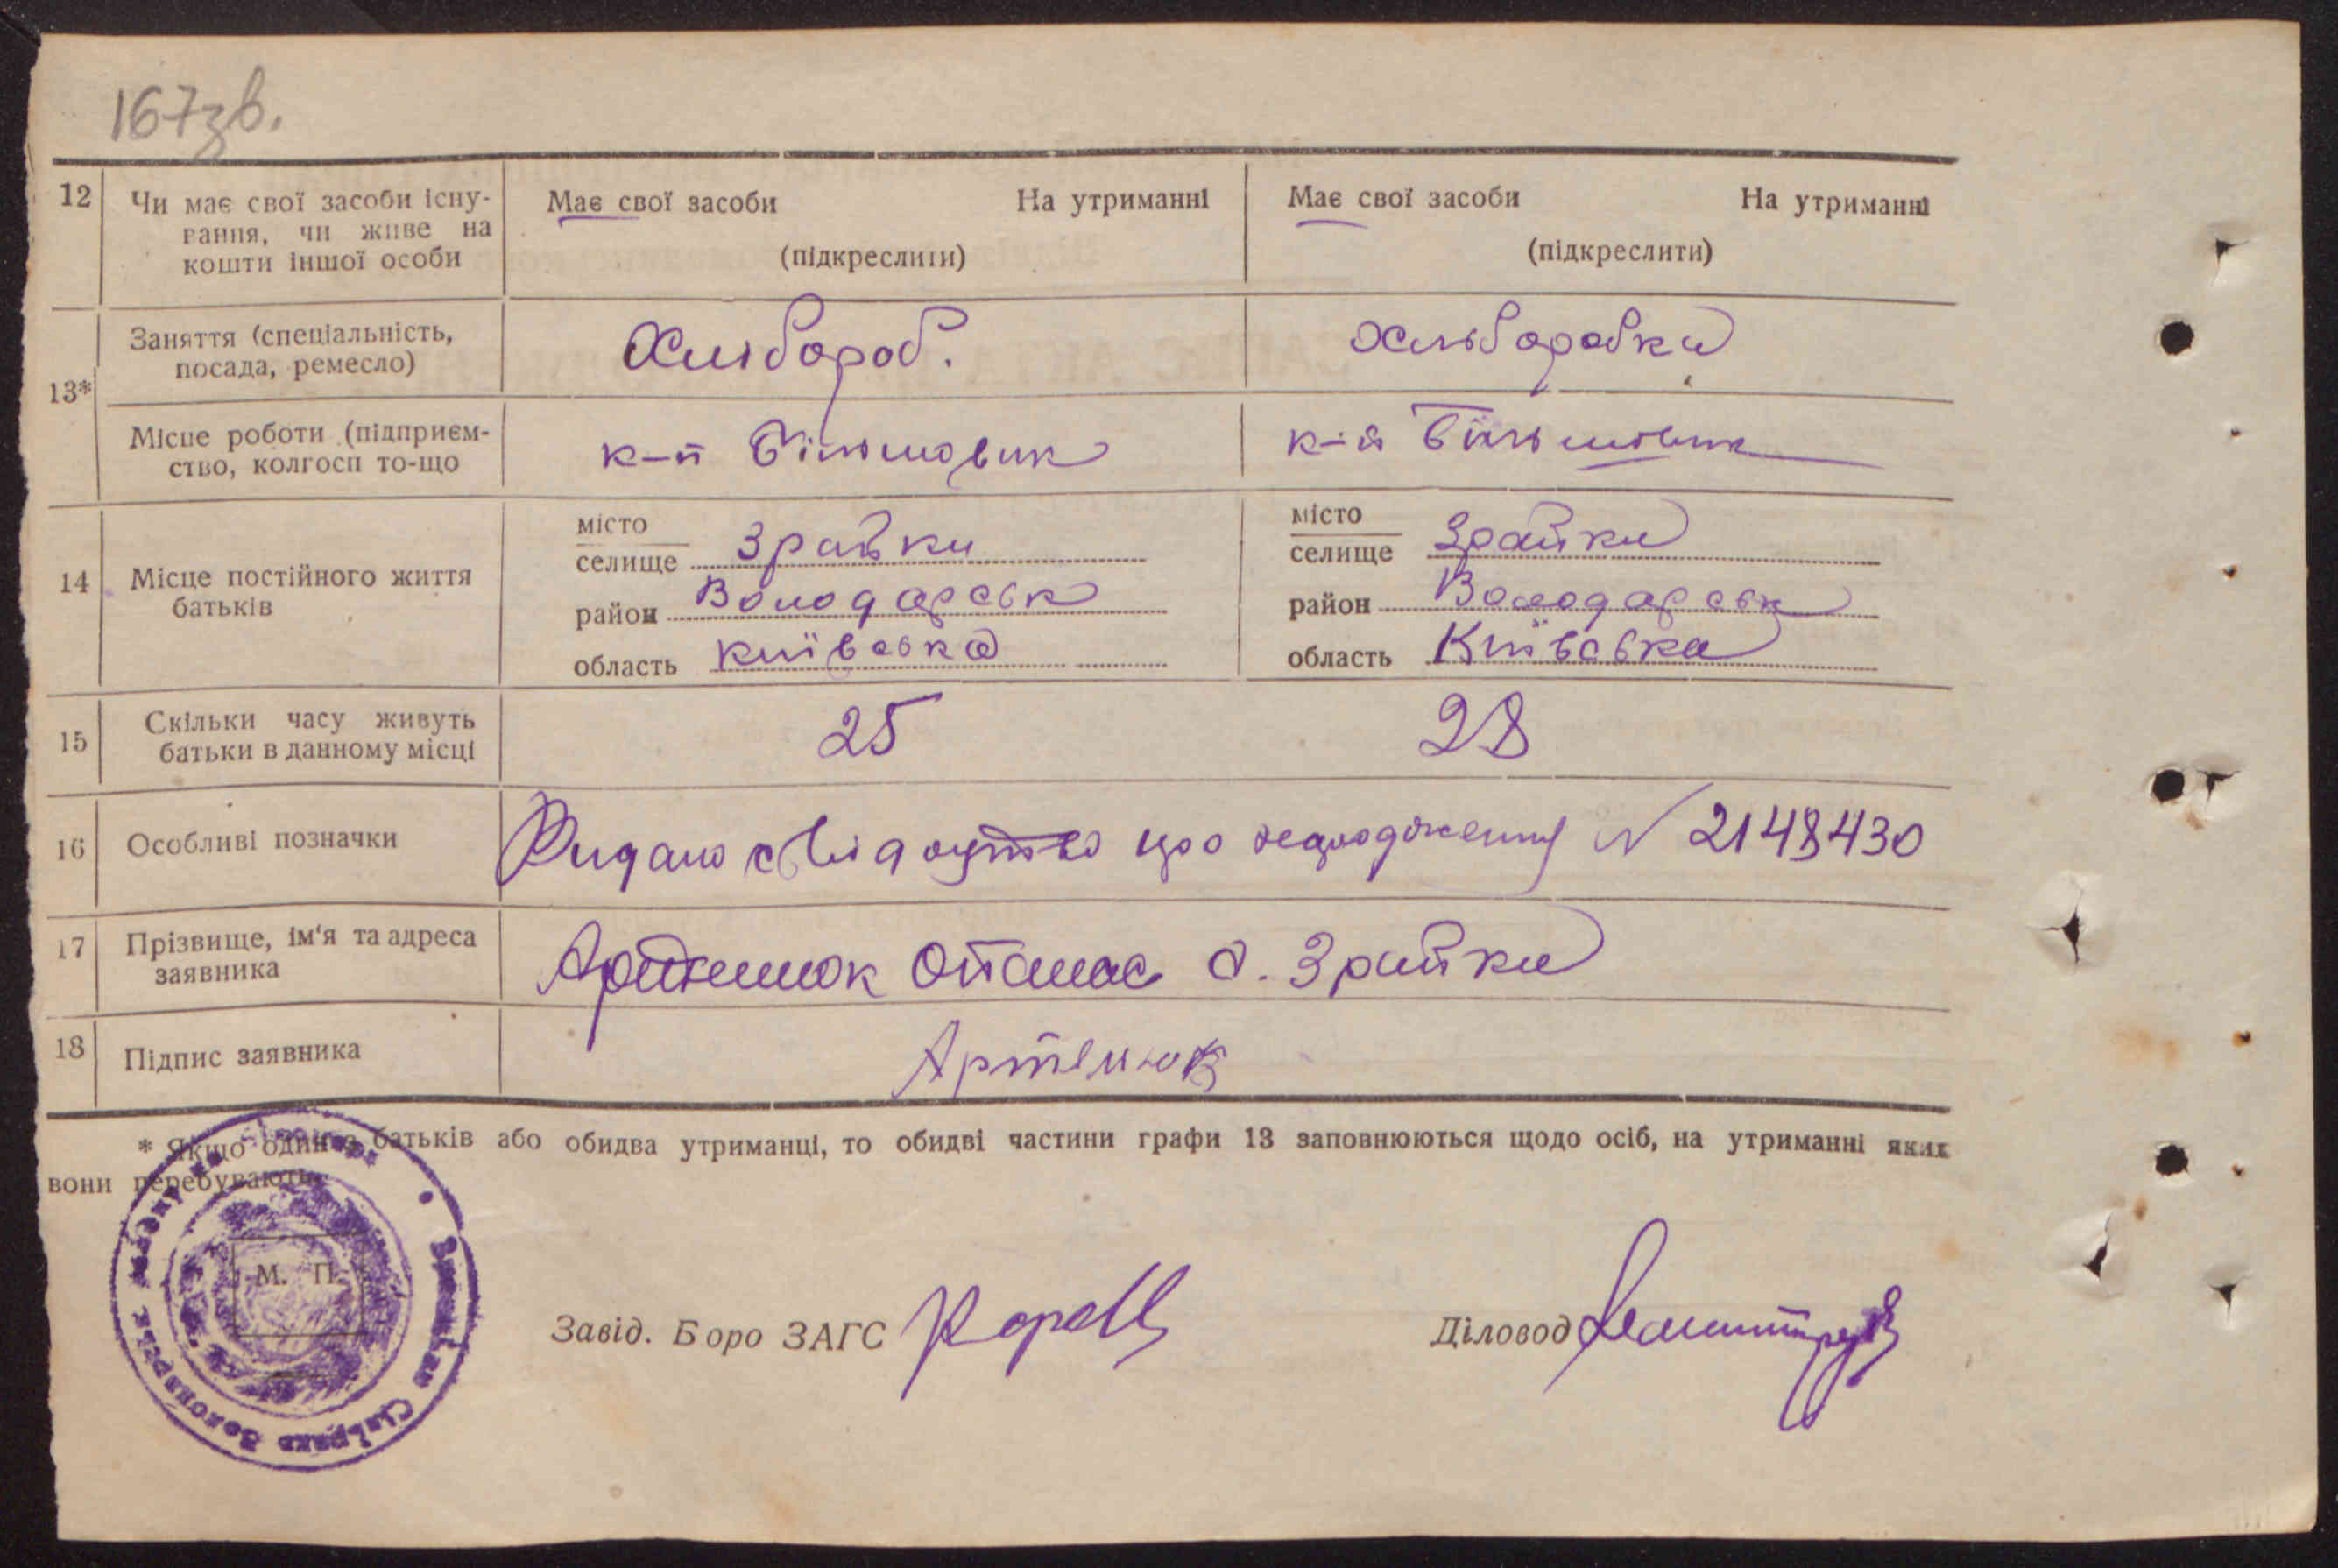 167зв.
12 Чи має свої засоби існу- Має свої засоби На утриманні Має свої засоби На утриманні
вання, чи живе на
кошти іншої особи (підкреслити) (підкреслити)
Заняття (спеціальність, Хлібороб. Хліборобка
посада, ремесло)
13*
Місце роботи (підприєм- к-п Більшовик к-п Більшовик
ство, колгосп то-що
місто місто
селище Зрайки селище Зрайки
14 Місце постійного життя
батьків
район Володарськ район Володарськ
область київська область Київська
15 Скільки часу живуть 25 28
батьки в данному місці
16 Особливі позначки Видано свідоцтво про N 2148430
17 Прізвище, ім'я та адреса Артемюк Опанас с. Зрайки
заявника
18 Підпис заявника Артемюк
* Якщо один з батьків або обидва утриманці, то обидві частини графи 13 заповнюються щодо осіб, на утриманні яких
вони перебувають.
М. П.
Завід. Боро ЗАГС
Діловод